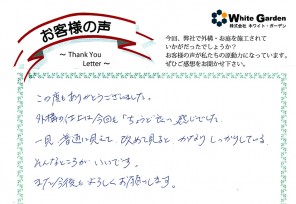 お客様の声
～ Thank You
Letter ～
White Garden
株式会社 ホワイト・ガーデン
今回、弊社で外構・お庭を施工されて
いかがだったでしょうか？
お客様の声が私たちの原動力になっています。
ぜひご感想をお聞かせ下さい。
この度もありがとうございました。
外構の仕上は今回も「ちょうど良い」感じでした。
一見 普通に見えて、改めて見ると かなり しっかりしている。
そんなところが いいです。
また今後とも よろしくお願いします。